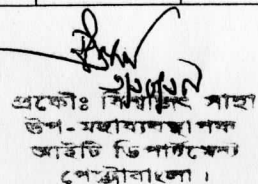 প্রকৌঃ সাহা
উপ-মহাব্যবস্থাপক
আইটি ডিপার্টমেন্ট
পেট্রোবাংলা।